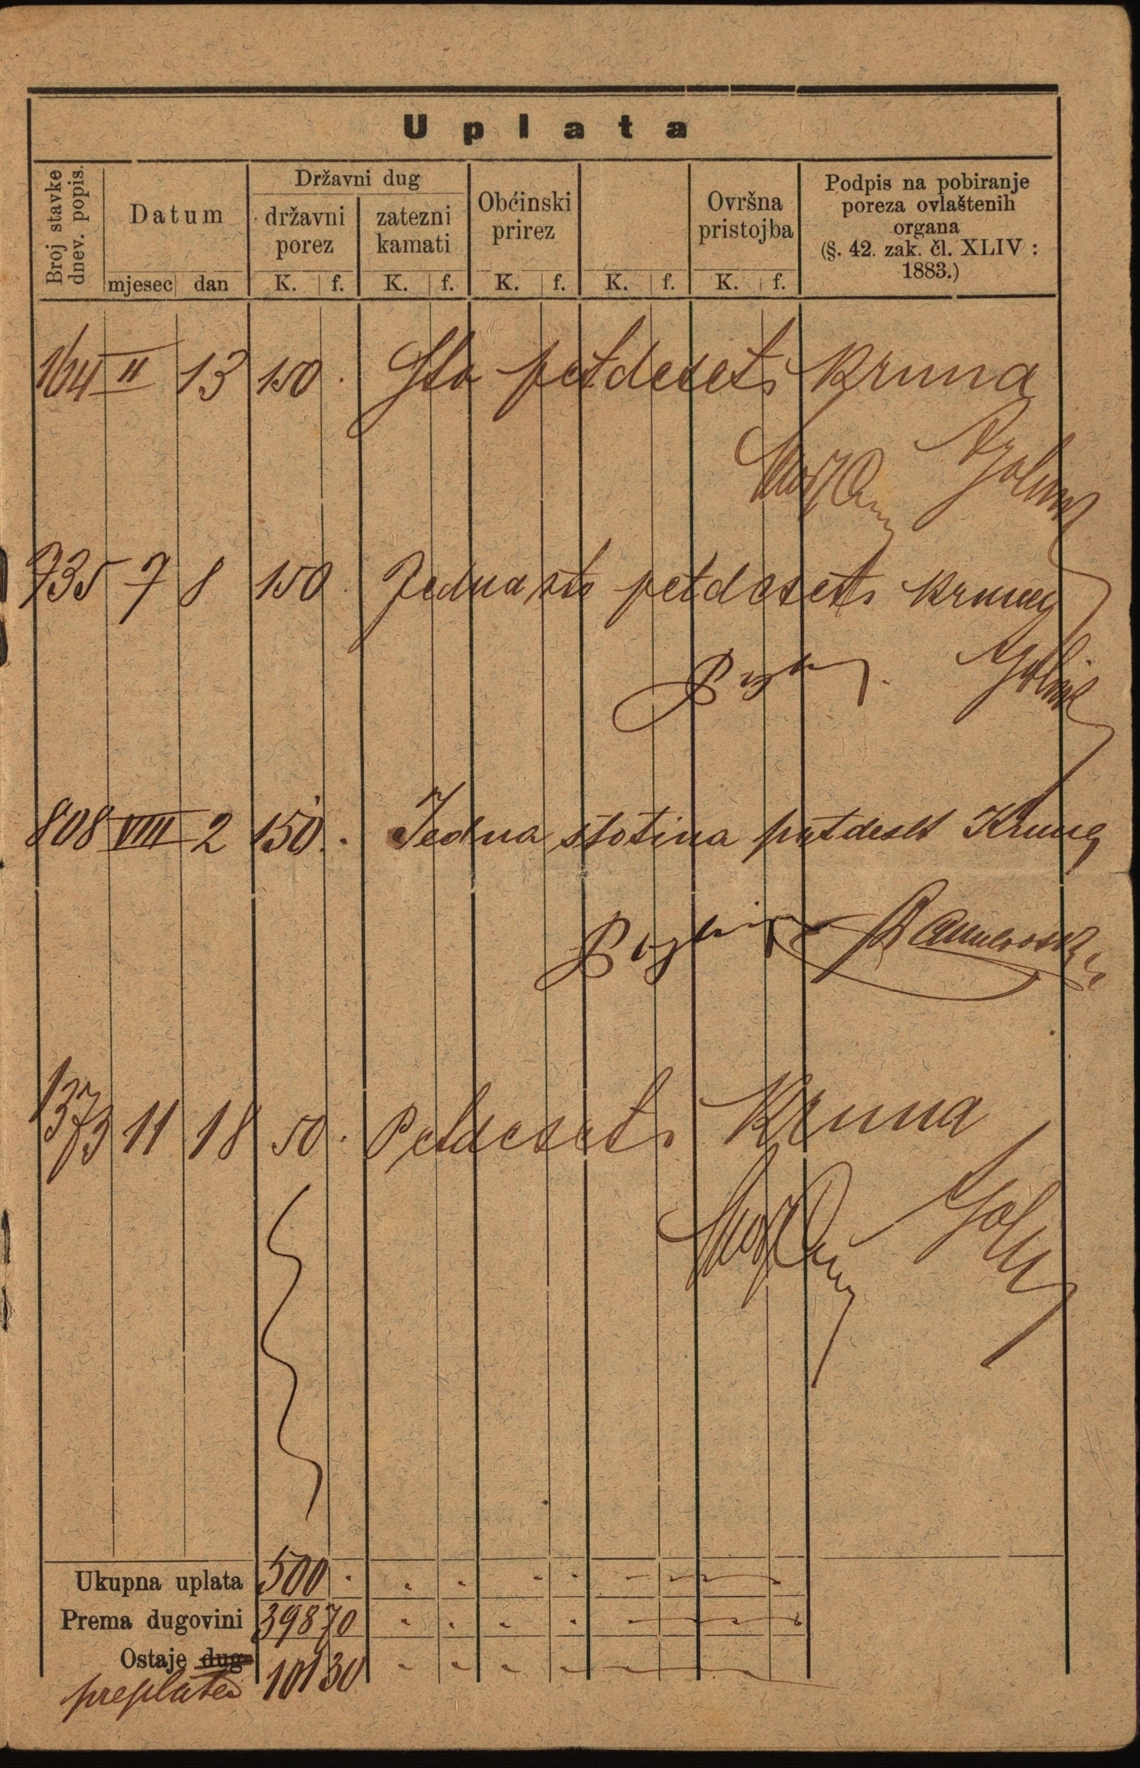 Uplata
Broj stavke dnev. popis.
Datum
mjesec dan
Državni dug
državni porez
K. f.
zatezni kamati
K. f.
Obćinski prirez
K. f.
K. f.
Ovršna pristojba
K. f.
Podpis na pobiranje
poreza ovlaštenih
organa
(§. 42. zak. čl. XLIV :
1883.)
164 II 13 150 . Sto petdeset Kruna
735 7 8 150 . Jedna sto petdeset Kruna
808 VIII 2 150 . Jedna stotina petdeset Kruna
1373 11 18 50 . Petdeset Kruna
Ukupna uplata 500 .
Prema dugovini 398 70
Ostaje dug
preplata 101 30